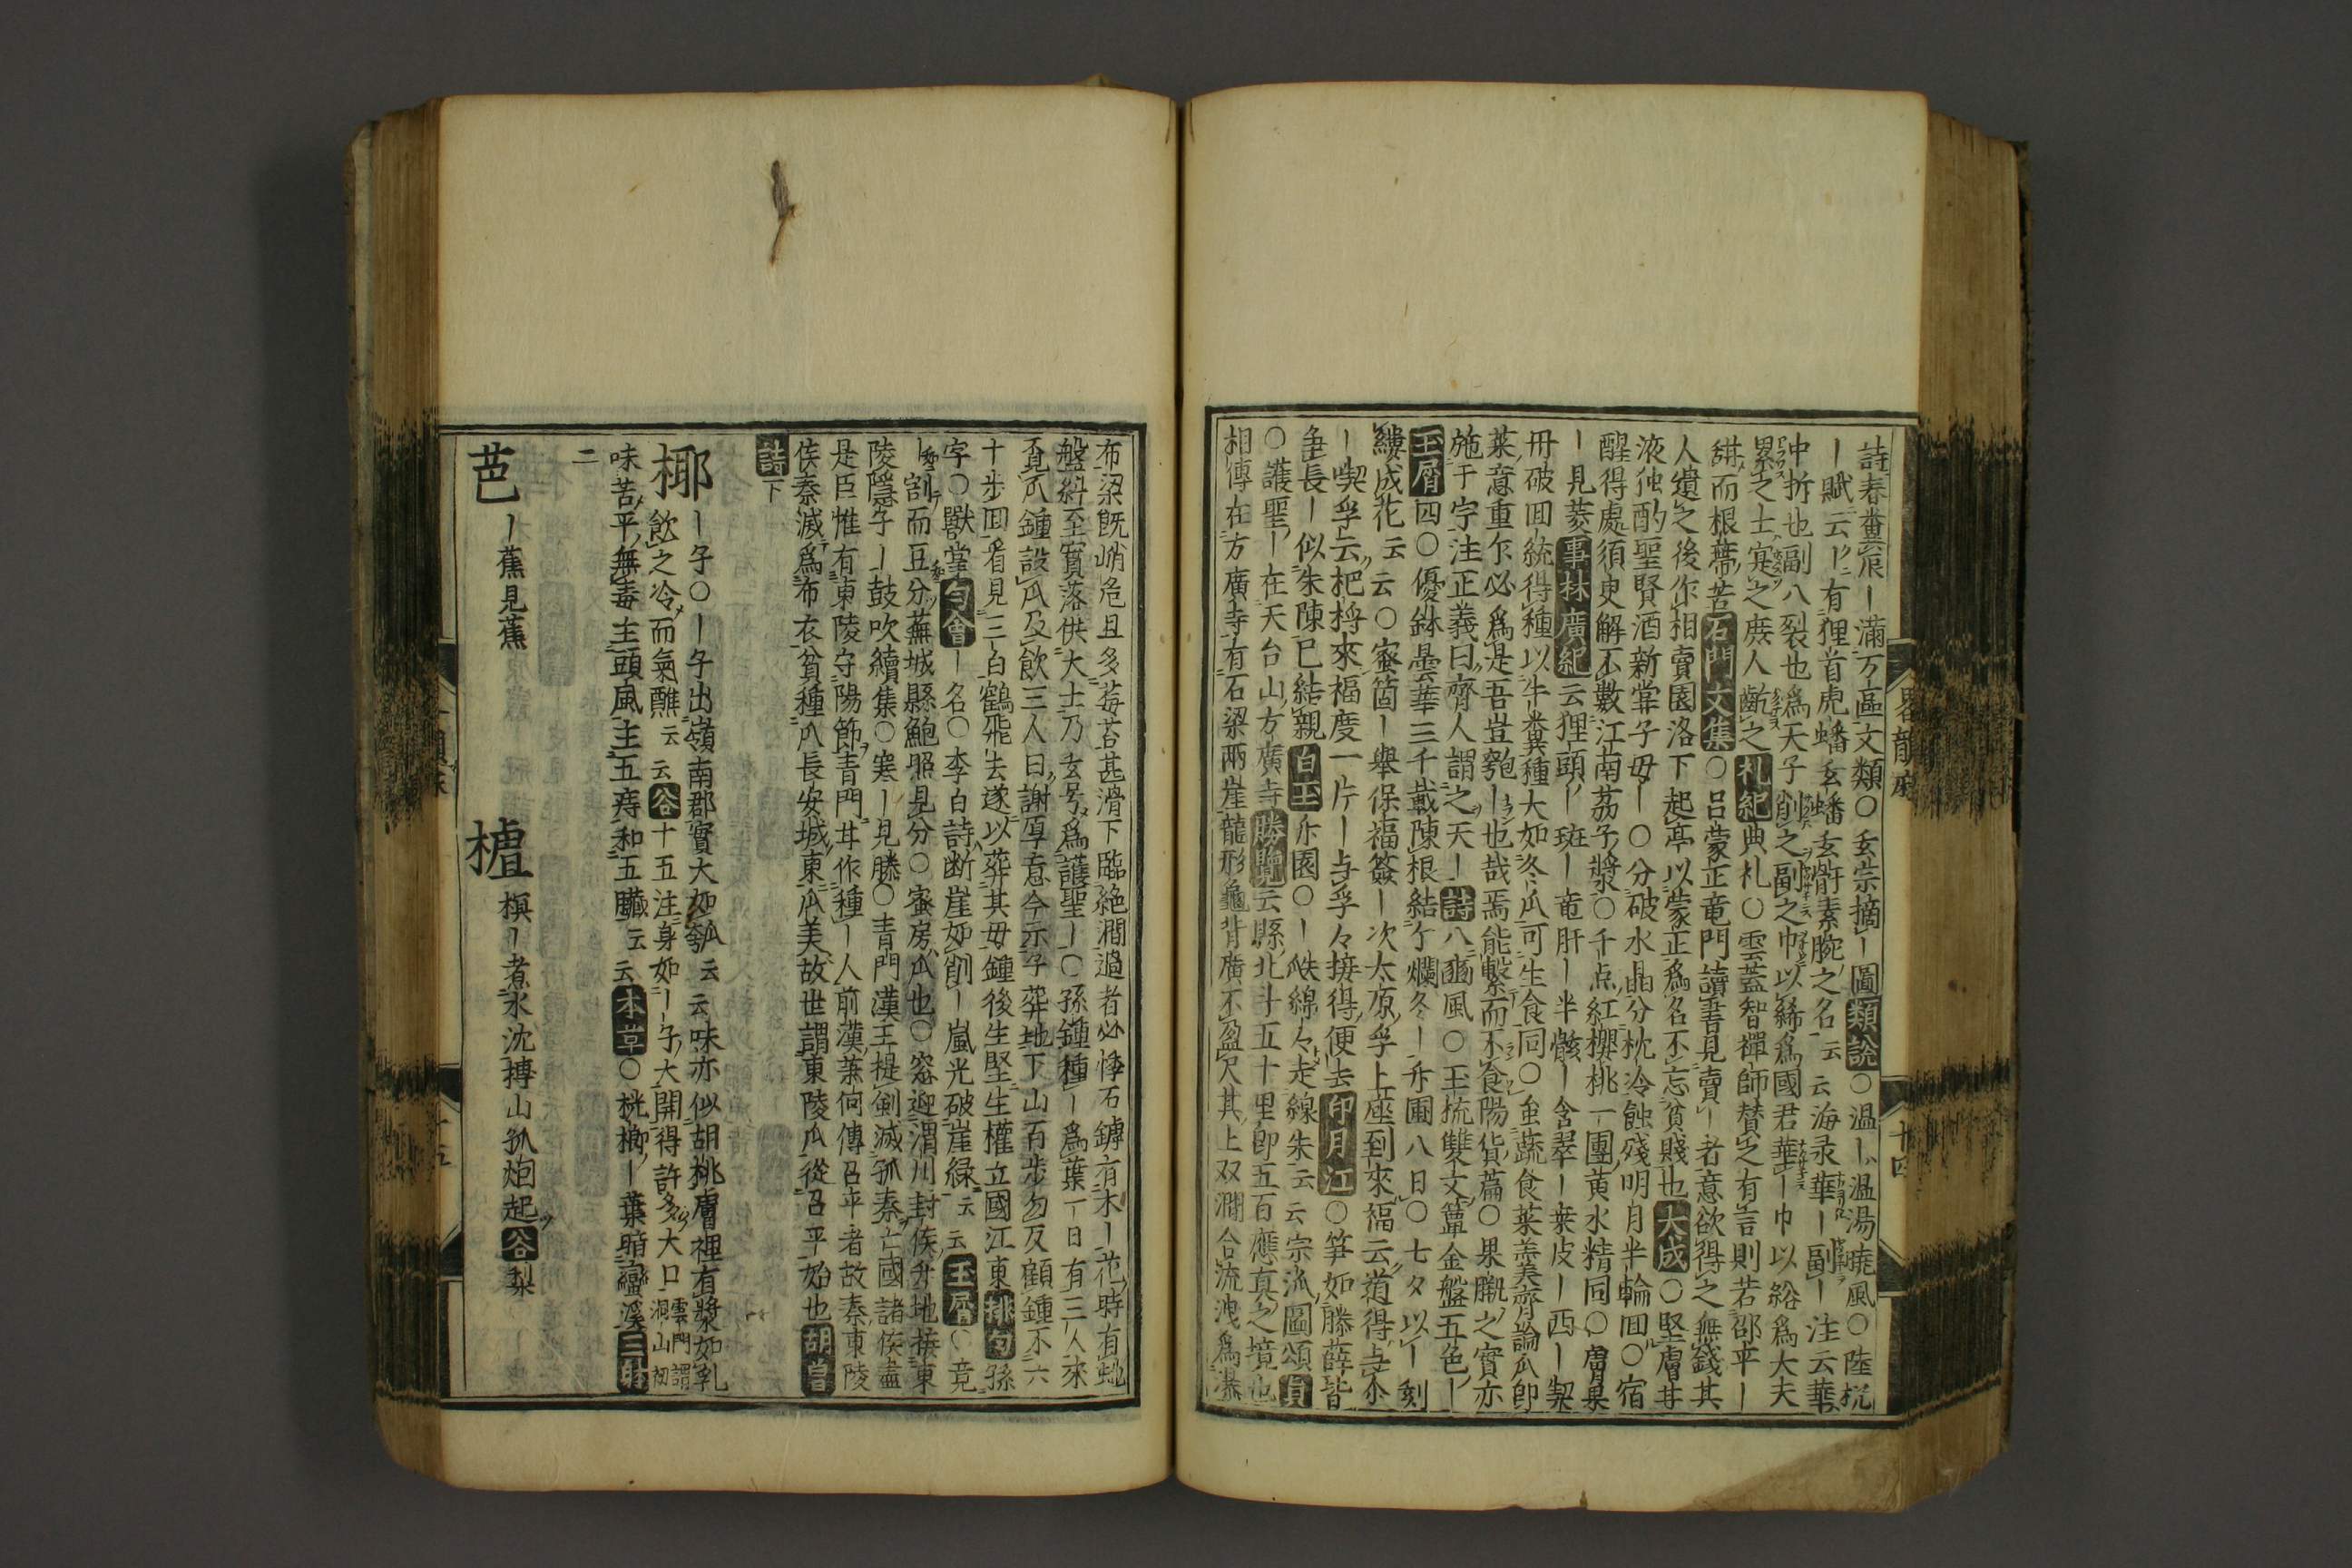 詩春蚕宸ー滿万區文類〇玄宗摘ー圖類說〇温ー温湯曉風〇陸机
ー賦云ー有狸首虎蟠玄蟠玄骭素腕之名云云海录華ー副ー注云華
中折也副八裂也爲天子削之副之巾以絺爲國君華ー巾以綌爲大夫
累之士寁之庶人齕之礼紀典礼〇雲蓋智禪師賛之有言則若邵平ー
甜而根蔕苦石門文集〇呂蒙正竜門讀書見賣ー者意欲得之無錢其
人遺之後作相賣園洛下起亭以蒙正爲名不忘貧賤也大成〇堅膚甘
液独酌聖賢酒新甞子母ー〇分破水晶分枕冷蝕殘明月半輪囬〇宿
醒得處須更解不數江南荔子漿〇千点紅櫻桃一團黄水精同〇膚果
ー見菱事林廣紀云狸頭ー斑ー竜肝ー半骸ー含翠ー奕皮ー西ー契
冊破囬ー統得種以牛糞種大如冬瓜可生食同〇虽蔬食菜羮美齊論瓜即
菜意重尓必爲是吾豈匏ー也哉焉能繋而不食陽貨篇〇果臝之實亦
施于宇注正義曰齊人謂之天ー詩八豳風〇玉梳雙文簟金盤五色ー
玉屑四〇優鉢曇華三千載陳根結个爛冬ー卉圃八日〇七夕以ー刻
縷成花云云〇蜜箇ー舉保福簽ー次太原孚上座到來福云道得与尒
ー喫孚云把捋來福度一片ー与孚々接得便去印月江〇笋如滕薛皆
争長ー似朱陳已結親白玉尓園〇ー瓞綿々走線朱云云宗派圖頌貞
〇護聖ー在天台山方廣寺勝覽云縣北斗五十里即五百應真之境也
相傳在方廣寺有石梁兩崖龍形龜背廣不盈尺其上双澗合流洩爲瀑
畧韻府
十四
布梁既峭危且多莓苔甚滑下臨絶澗過者必悸石罅有木ー花時有虵
盤糾至實落供大士乃玄号爲護聖ー〇孫鍾種ー爲葉一日有三人來
覔瓜鍾設瓜及飲三人曰謝厚意今示子葬地下山百步勿反顧鍾不六
十步囬看見三白鶴飛去遂以葬其母鍾後生堅生權立國江東排匀孫
字〇獸堂勻會ー名〇李白詩断崖如削ー嵐光破崖緑云云玉屑〇竟
ー割而豆分蕪城縣鮑照見分〇蜜房瓜也〇窓迎渭川封侯舛地接東
陵隱子ー鼓吹續集〇寒ー見勝〇青門漢王提劍滅孤秦亡國諸侯盡
是臣惟有東陵守陽節青門甘作種ー人前漢蕭何傳召平者故秦東陵
侯秦滅爲布衣貧種瓜長安城東瓜美故世謂東陵瓜從召平始也胡曽
詩下
椰ー子〇ー子出嶺南郡實大如瓠云云味亦似胡桃膚裡有漿如乳
飲之冷而氣醺云云谷十五注身如ー子大開得許多大口雲門謂洞山初
味苦平無毒主頭風主五痔和五臟云云本草〇桄榔ー葉暗蠻溪三射
二
芭ー蕉見蕉
樝榠ー煮水沈摶山瓠炮起谷梨